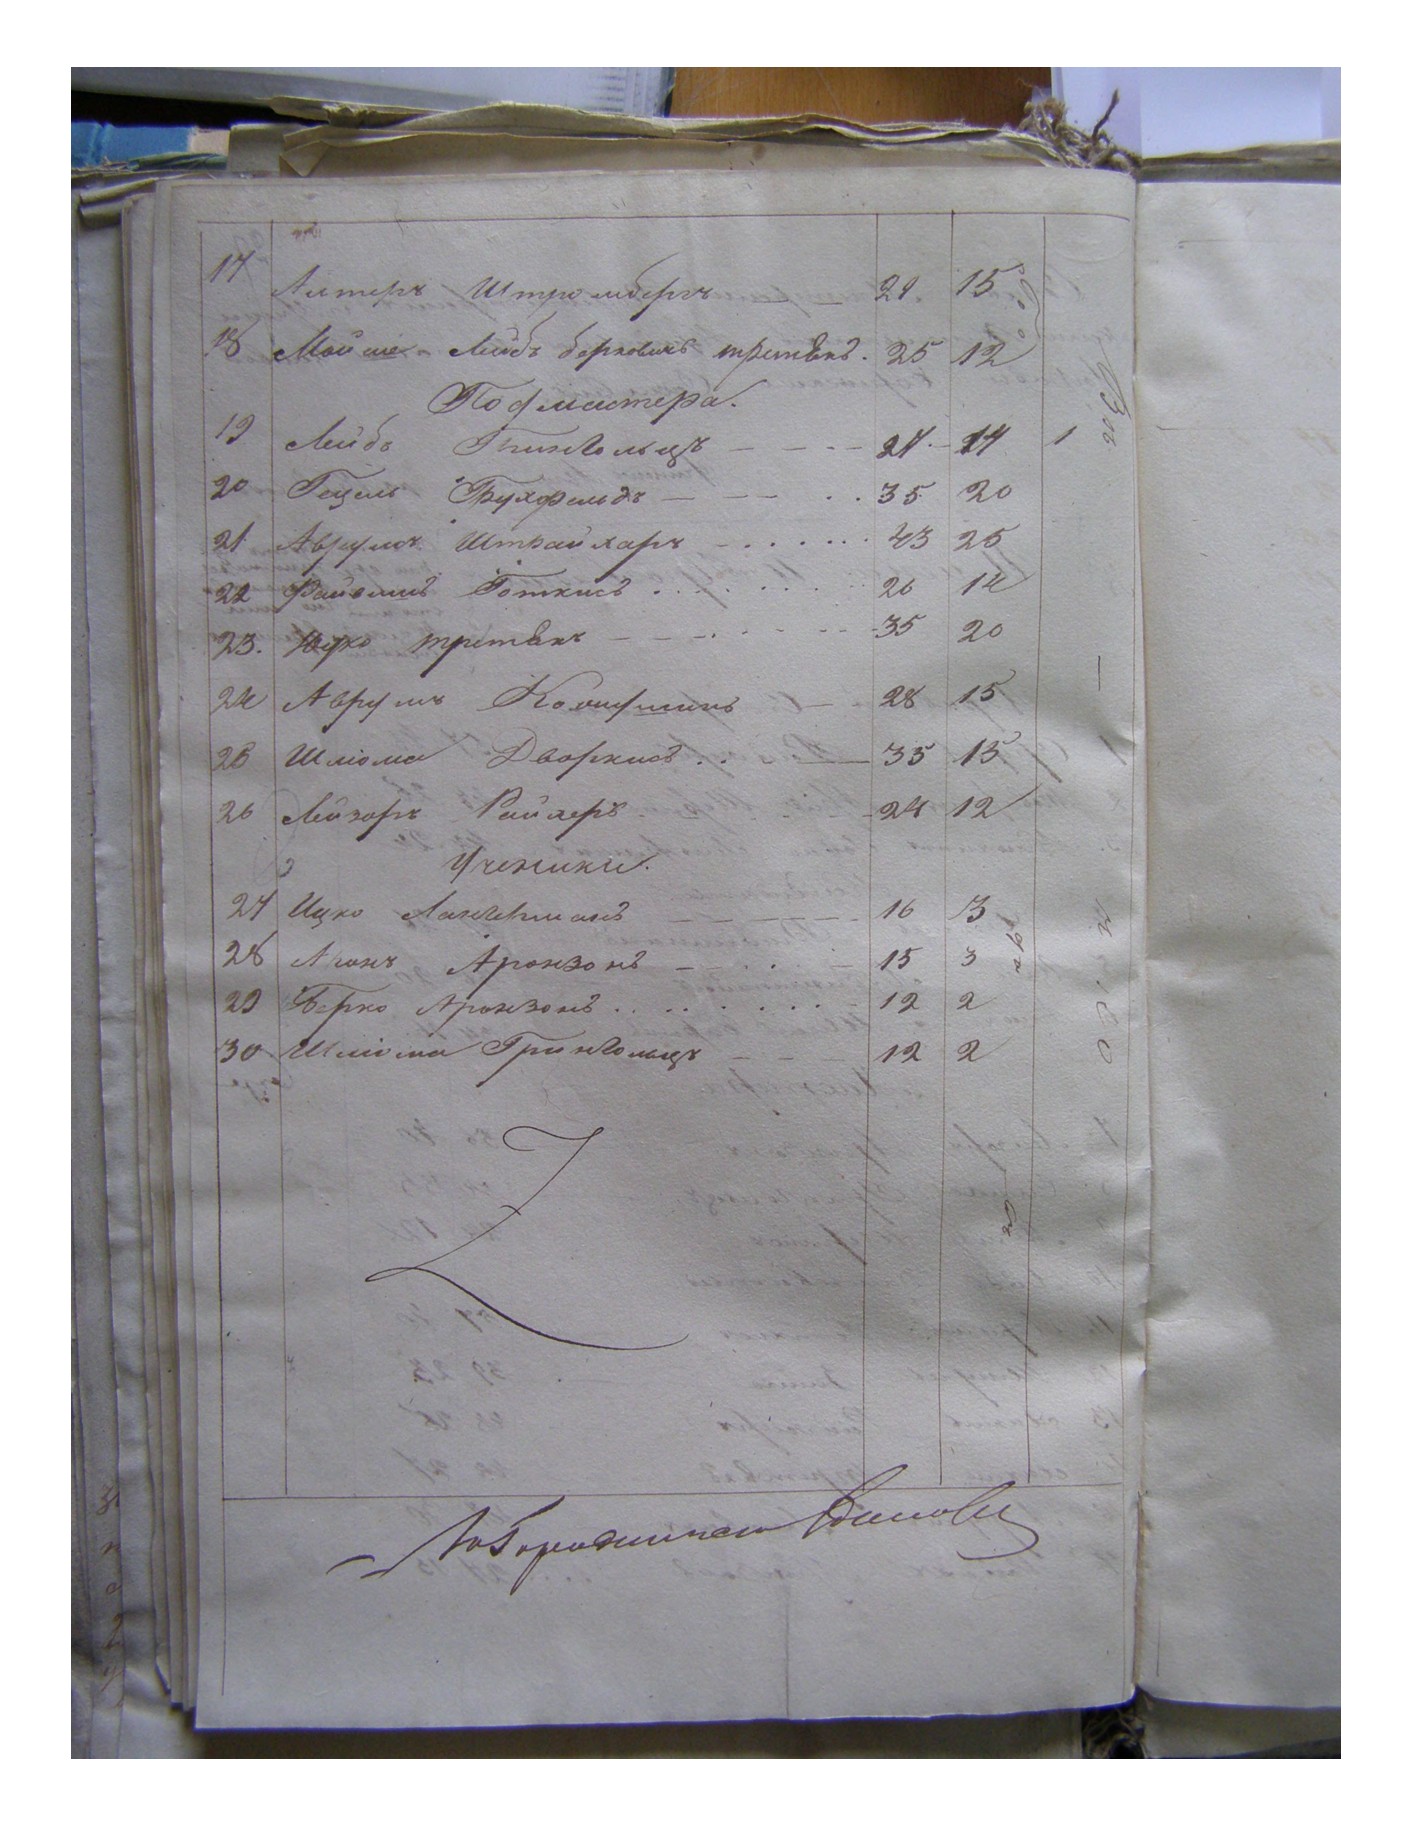 17 Алтеръ Штромбергъ 29 15
18 Мойше-Лейбъ Берковичъ третякъ. 25 12
Подмастера.
19 Лейбъ Гингольцъ 24 14 1
20 Гецель Бухфельдъ 35 20
21 Аврумъ Штрайхаръ 43 25
22 Файвишъ Готкисъ 26 14
23. Ицко третякъ 35 20
24 Аврумъ 28 15
25 Шлиома Дворкисъ 35 15
26 Лейзоръ Райхеръ 24 12
Ученики.
27 Ицко Лангерманъ 16 3
28 Аронъ Аронзонъ 15 3
29 Берко Аронзонъ 12 2
30 Шлиома Грингольцъ 12 2